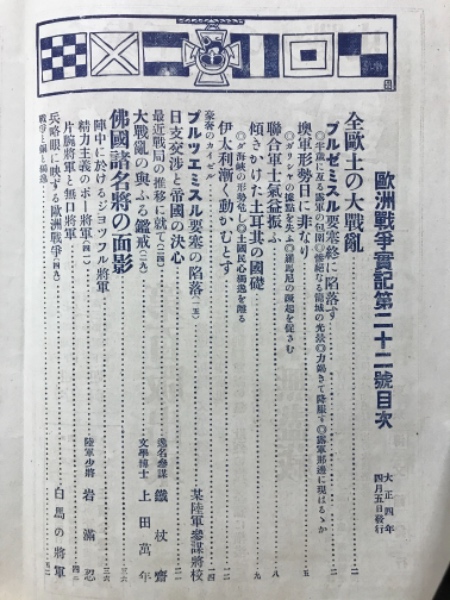 歐洲戰爭實記第二十二號目次
大正四年
四月五日發行
全歐土の大戰亂……一
プルゼミスル要塞終に陷落す……二
◎半歲に亙る露軍の包圍◎慘絕なる籠城の光景◎力竭きて降服す◎露軍那邊に現はるゝか
墺軍形勢日に非なり……五
◎ガリシヤの據點を失ふ◎羅馬尼の蹶起を促さむ
聯合軍士氣益振ふ……八
傾きかけた土耳其の國礎……九
◎ダ海峽の形勢危し◎土國民心獨逸を離る
伊太利漸く動かむとす……一二
豪奢のカイゼル……一四
プルツエミスル要塞の陷落(一五) 某陸軍參謀將校
日支交涉と帝國の決心……二一
最近戰局の推移に就て(二四) 逸名參謀 鐵杖齋
大戰亂の與ふる鑑戒(二九) 文學博士 上田萬年
佛國諸名將の面影……三六
陣中に於けるジヨツフル將軍……三六
精力主義のポー將軍(四一) 陸軍少將 岩滿忍
片腕將軍と無口將軍……四二
兵略眼に映ずる歐洲戰爭(四九) 白馬の將軍